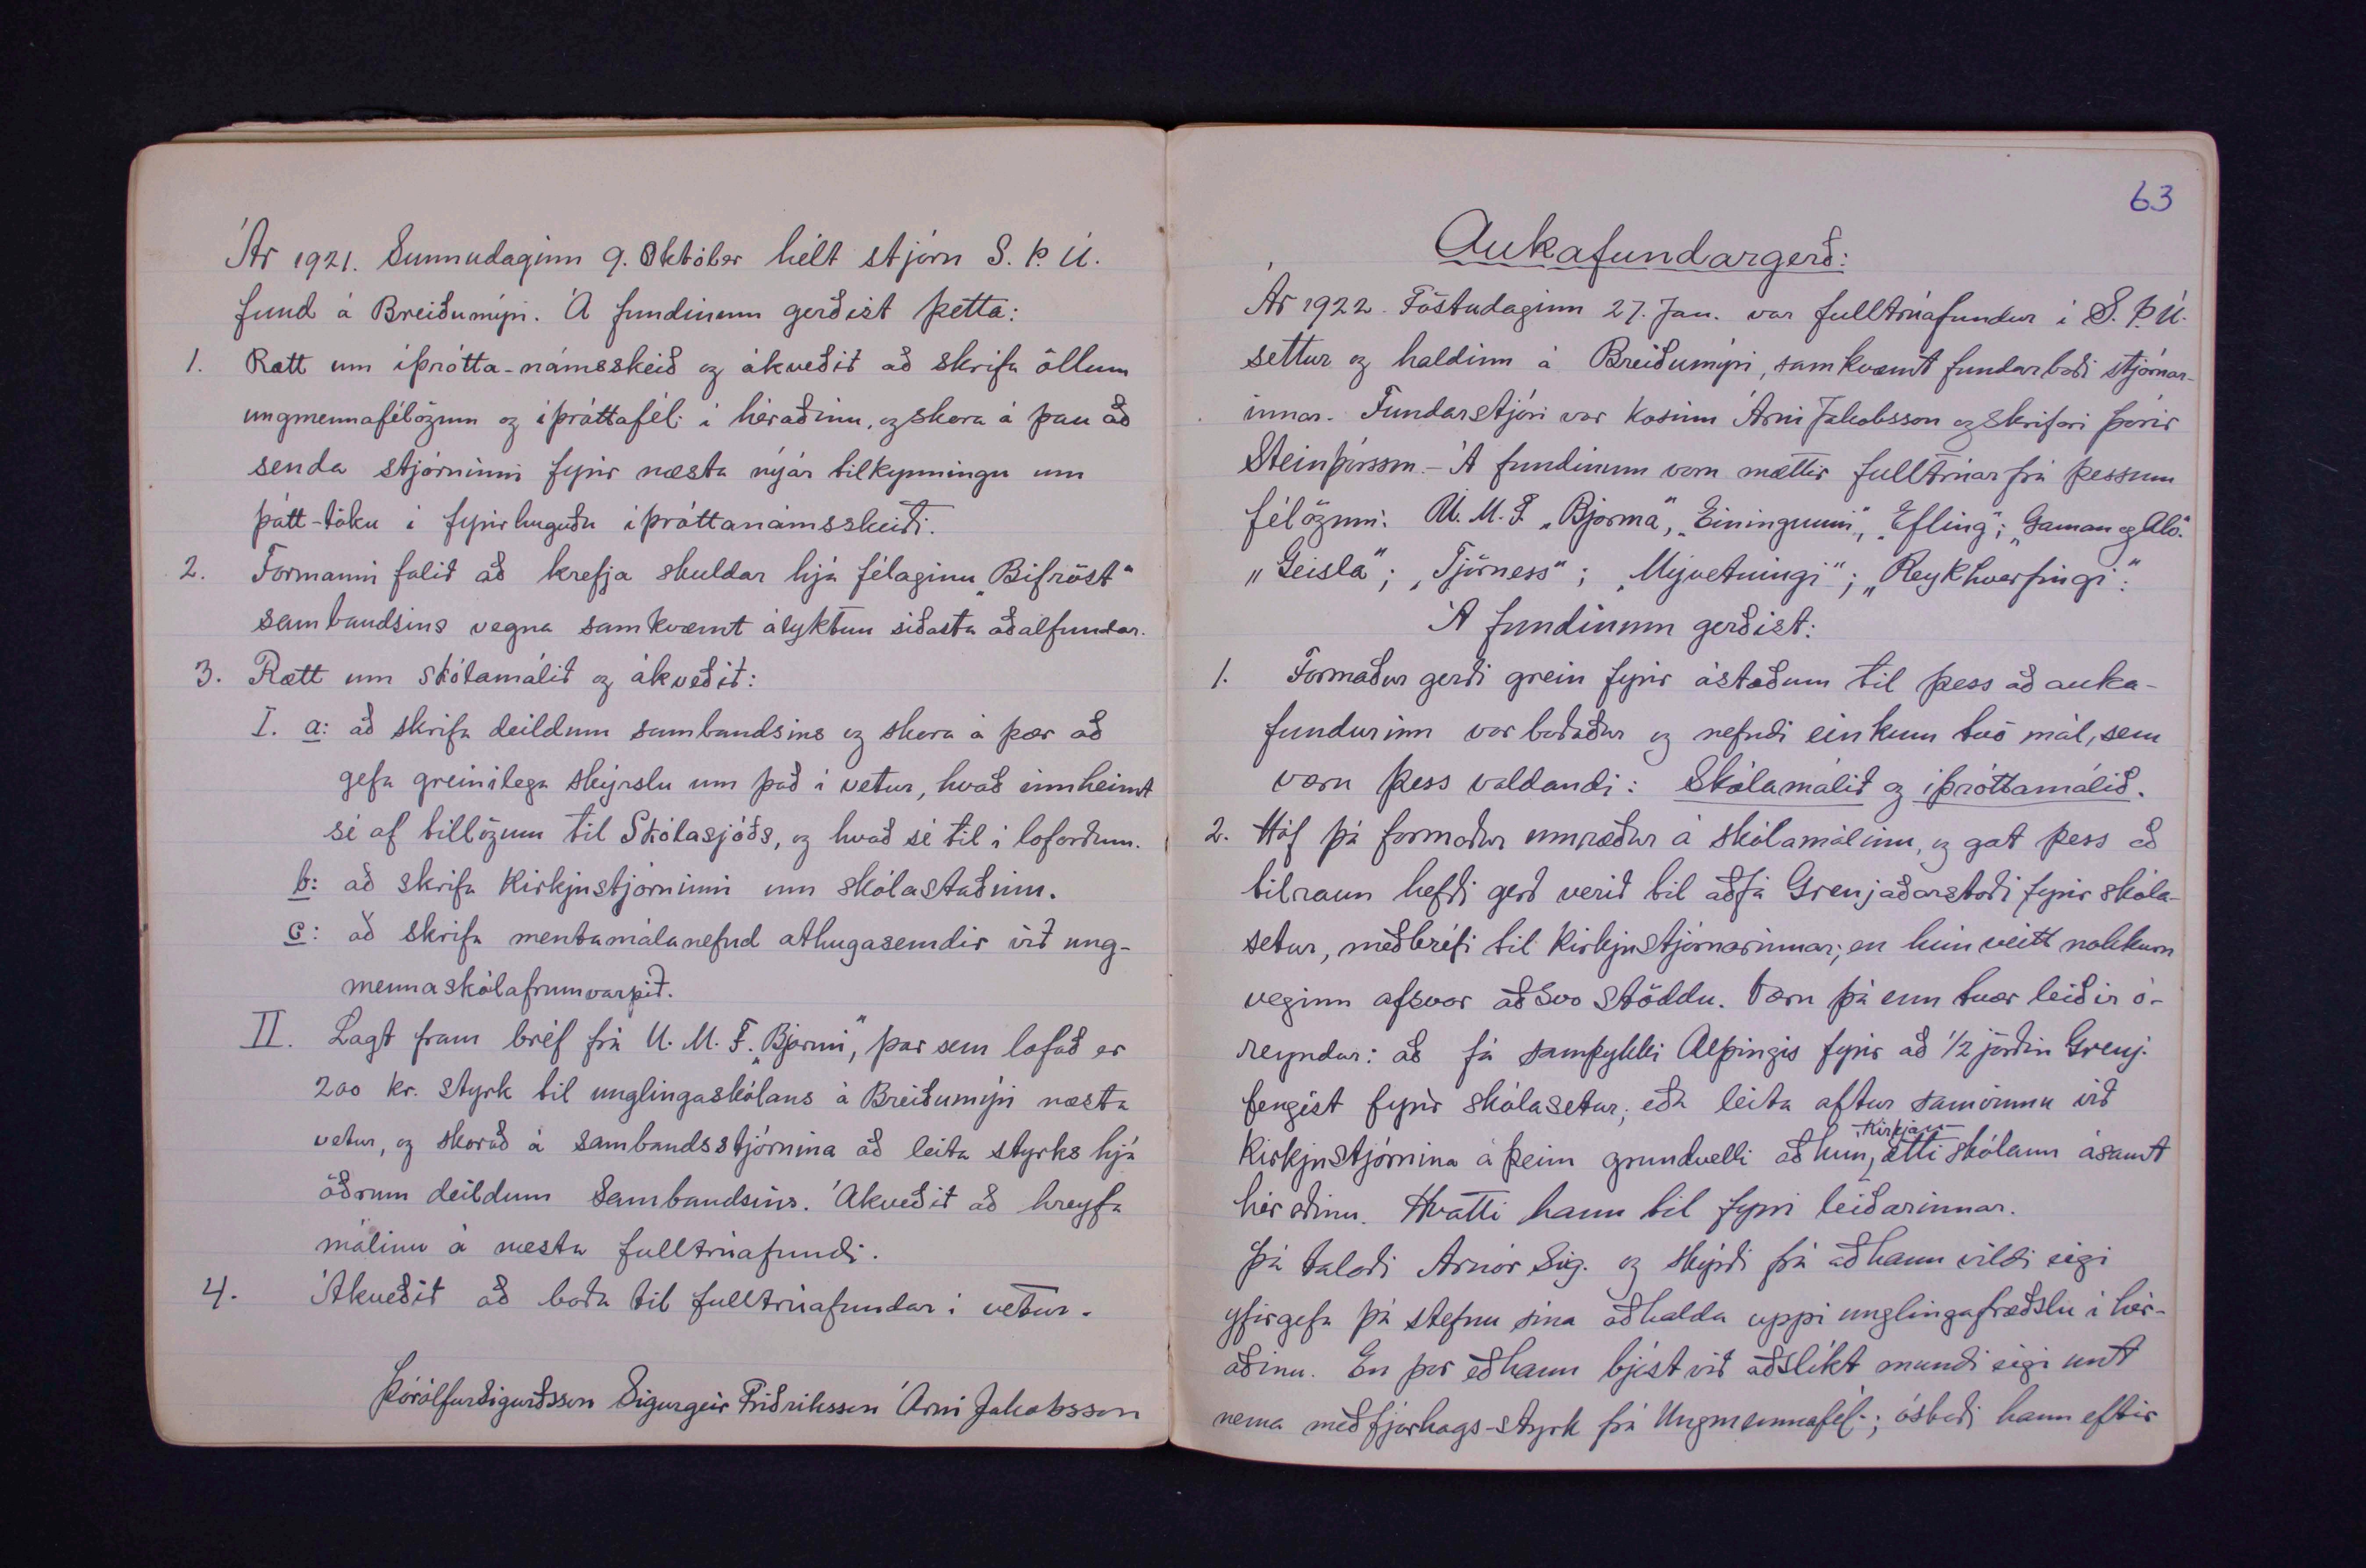 Ár 1921. Sunnudaginn 9. Október hélt stjórn S. Þ. U.
fund á Breiðumýri. Á fundinum gerðist þetta:
1. Rætt um íþrótta-námsskeið og ákveðið að skrifa öllum
ungmennafélögum og íþróttafél. í héraðinu, og skora á þau að
senda stjórninni fyrir næsta nýár tilkynningu um
þátt-töku í fyrirhuguðu íþróttanámsskeiði.
2. Formanni falið að krefja skuldar hjá félaginu „Bifröst“
sambandsins vegna samkvæmt ályktun síðasta aðalfundar.
3. Rætt um skólamálið og ákveðið:
I. a: að skrifa deildum sambandsins og skora á þær að
gefa greinilega skýrslu um það í vetur, hvað innheimt
sé af tillögum til Skólasjóðs, og hvað sé til í loforðum.
b: að skrifa Kirkjustjórninni um skólastaðinn.
c: að skrifa mentamálanefnd athugasemdir við ung-
mennaskólafrumvarpið.
II. Lagt fram bréf frá U. M. F. „Bjarmi“, þar sem lofað er
200 kr. styrk til unglingaskólans á Breiðumýri næsta
vetur, og skorað á sambandsstjórnina að leita styrks hjá
öðrum deildum Sambandsins. Ákveðið að hreyfa
málinu á næsta fulltrúafundi.
4. Ákveðið að boða til fulltrúafundar í vetur.
Þórólfur Sigurðsson Sigurgeir Friðriksson Árni Jakobsson
63
Aukafundargerð:
Ár 1922. Föstudaginn 27. Jan. var fulltrúafundur í S. Þ. U.
settur og haldinn á Breiðumýri, samkvæmt fundarboði stjórnar-
innar. Fundarstjóri var kosinn Árni Jakobsson og skrifari Þórir
Steinþórsson. - Á fundinum voru mættir fulltrúar frá þessum
félögum: U. M. F. „Bjarma“, „Einingunni“, „Efling“; „Gaman og Alv.“
„Geisla“; „Tjörness“; „Mývetningi“; „Reykhverfingi“.
Á fundinum gerðist:
1. Formaður gerði grein fyrir ástæðum til þess að auka-
fundurinn var boðaður og nefndi einkum tvö mál, sem
væru þess valdandi: Skólamálið og íþróttamálið.
2. Hóf þá formaður umræður á skólamálinu, og gat þess að
tilraun hefði gerð verið til að fá Grenjaðarstaði fyrir skóla-
setur, með bréfi til Kirkjustjórnarinnar; en hún veitt nokkurn
veginn afsvar að svo stöddu. Væru þá enn tvær leiðir ó-
reyndar: að fá samþykki Alþingis fyrir að 1/2 jörðin Grenj.
fengist fyrir skólasetur; eða leita aftur samvinnu við
Kirkjustjórnina á þeim grundvelli að hún, -Kirkjan- ætti skólann ásamt
héraðinu. Hvatti hann til fyrri leiðarinnar.
Þá talaði Arnór Sig. og skýrði frá að hann vildi eigi
yfirgefa þá stefnu sína að halda uppi unglingafræðslu í hér-
aðinu. En þar eð hann bjóst við að slíkt mundi eigi unt
nema með fjárhags-styrk frá Ungmennafél.; óskaði hann eftir